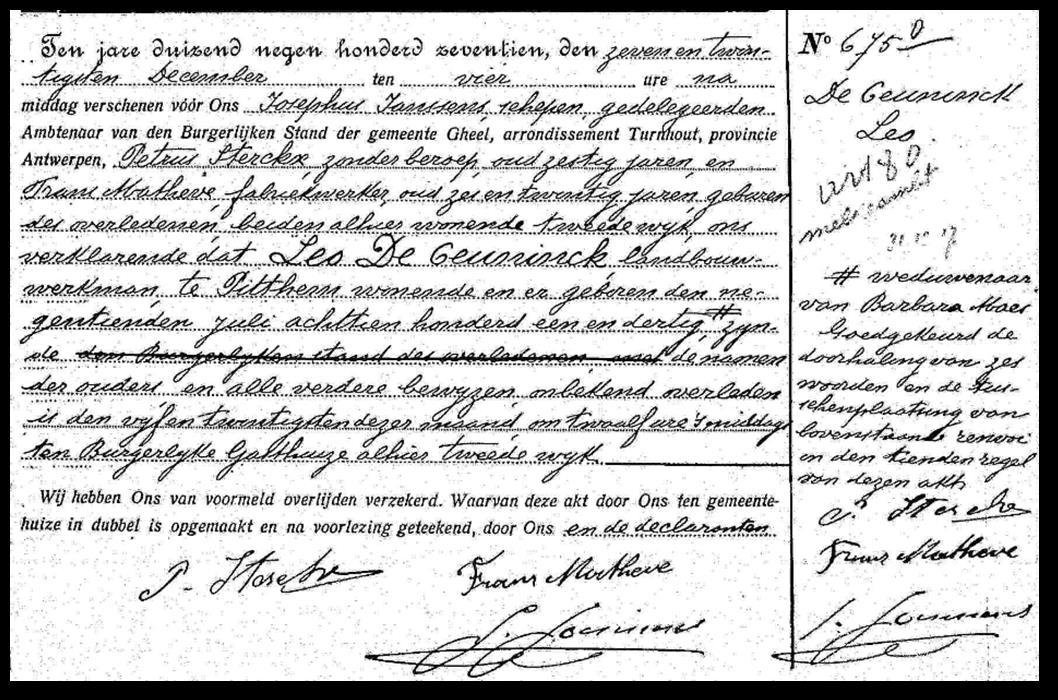 Ten jare duizend negen honderd zeventien, den zeven en twin-
tigsten December ten vier ure na
middag verschenen vóór Ons Josephus Janssens, schepen gedelegeerden
Ambtenaar van den Burgerlijken Stand der gemeente Gheel, arrondissement Turnhout, provincie
Antwerpen, Petrus Sterckx zonder beroep, oud zestig jaren en
Frans Matheve fabriekwerker, oud zes en twintig jaren, geburen
des overledenen, beiden alhier wonende tweede wijk, ons
verklarende dat Leo De Ceuninck landbouw-
werkman, te Pitthem wonende en er geboren den ne-
gentienden juli achttien honderd een en dertig, # zyn-
de den Burgerlyken stand des overledenen de namen
der ouders en alle verdere bewyzen onbekend overleden
is den vyf en twintigsten dezer maand om twaalf ure 's middags
ten Burgerlyke Gasthuize alhier tweede wyk
Wij hebben Ons van voormeld overlijden verzekerd. Waarvan deze akt door Ons ten gemeente-
huize in dubbel is opgemaakt en na voorlezing geteekend, door Ons en de declaranten
P. Sterckx Frans Matheve
J. Janssens
No 675
De Ceuninck
Leo.
31 12 17
# weduwenaar
van Barbara Maes
Goedgekeurd de
doorhaling van zes
woorden en de tus-
schenplaatsing van
bovenstaande renvooi
in den tienden regel
van dezen akt
P. Sterckx
Frans Matheve
J. Janssens